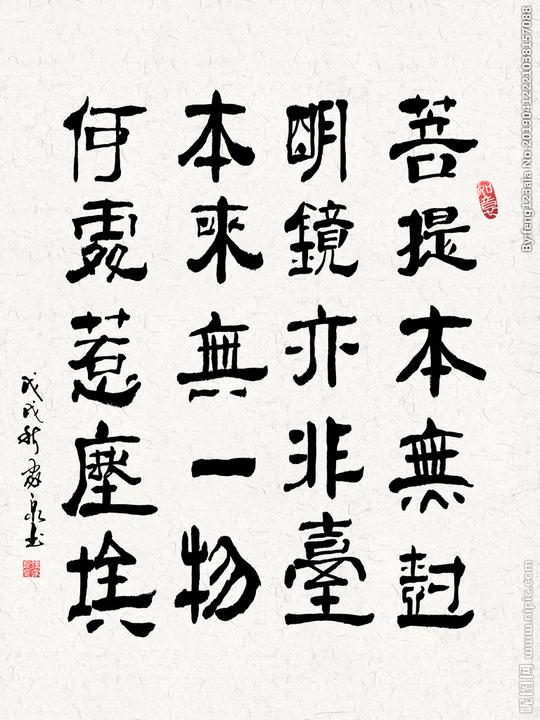 菩提本無樹
明鏡亦非臺
本來無一物
何處惹塵埃
戊戌秋泉书
如意
By:feng123aia No:20190412221038157088
昵图网 www.nipic.com